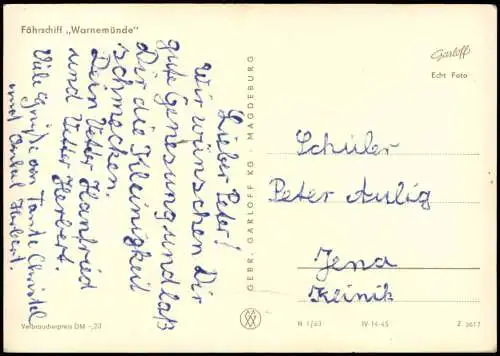 Fährschiff „Warnemünde"
Lieber Peter!
Wir wünschen Dir
gute Genesung und laß
Dir die Kleinigkeit
schmecken.
Dein Vetter Hanfried
und Vetter Herbert.
Viele Grüße von Tante Christel
und Onkel Herbert.
Verbraucherpreis DM -,20
GEBR. GARLOFF KG. - MAGDEBURG
Garloff
Echt Foto
Schüler
Peter Aulig
Jena
Klinik
N 1/63 IV-14-45 Z 5617